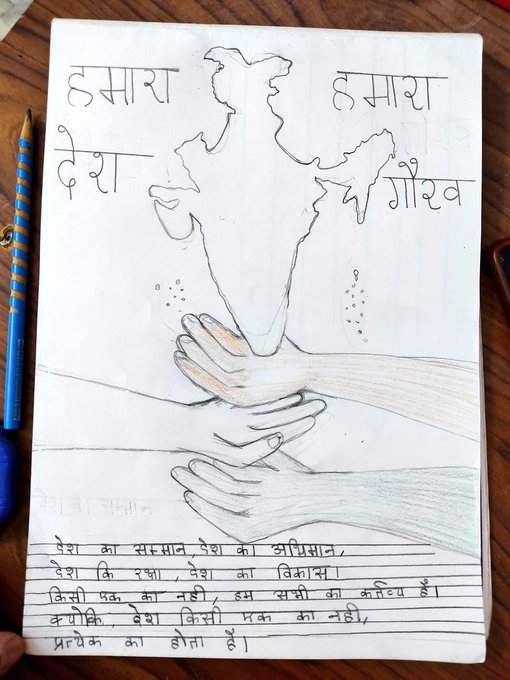 हमारा
देश
हमारा
गौरव
देश का सम्मान, देश का अभिमान,
देश कि रक्षा, देश का विकास।
किसी एक का नही, हम सभी का कर्तव्य हैं।
क्योकि, देश किसी एक का नही,
प्रत्येक का होता हैं।